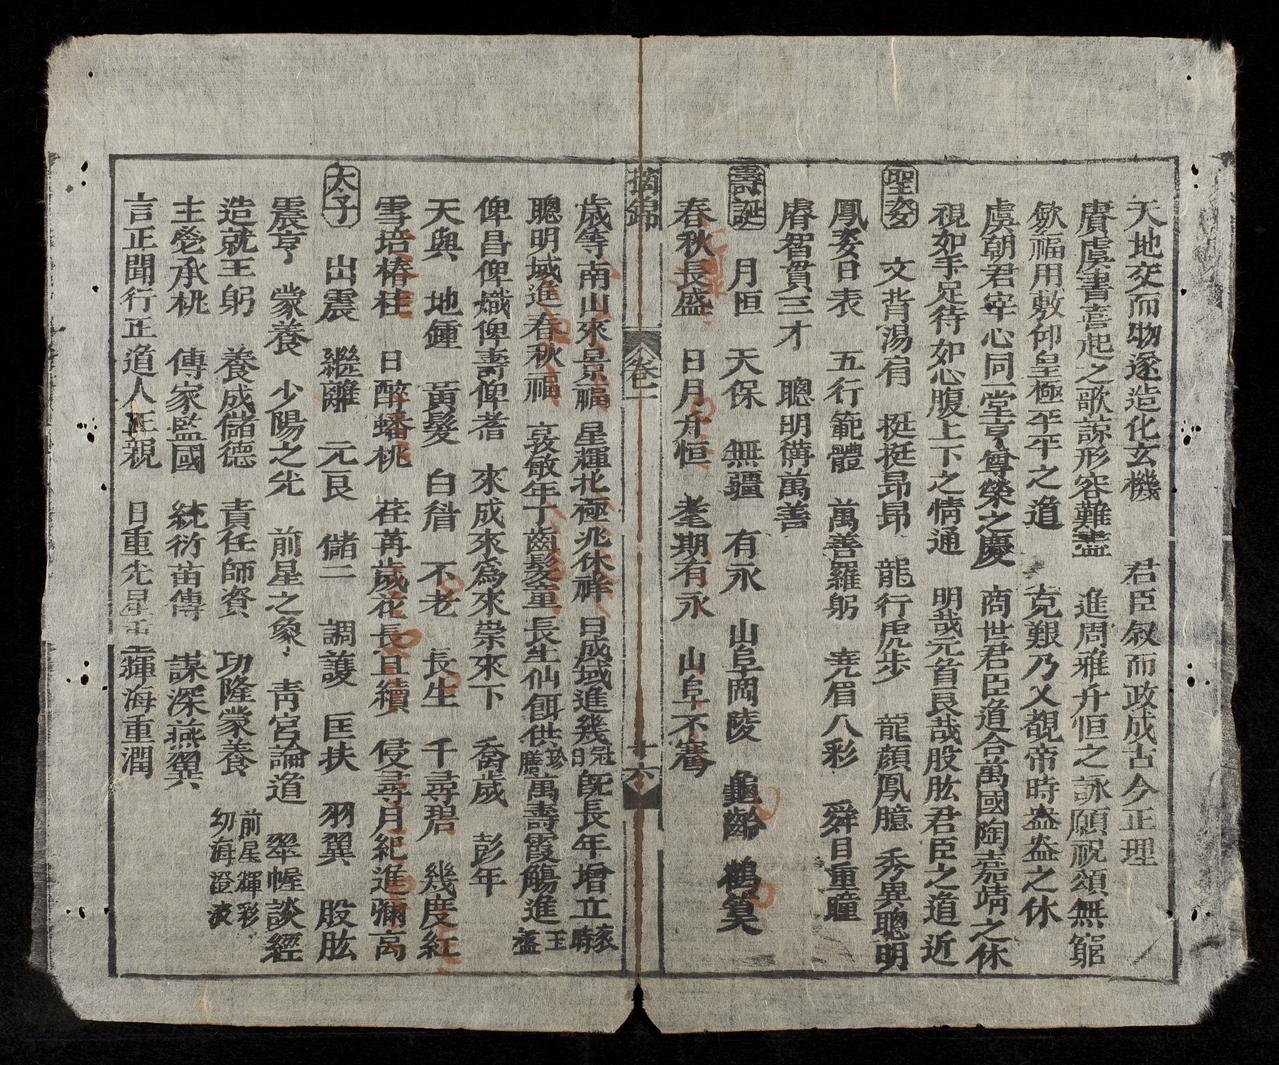 天地交而物遂造化玄機　君臣叙而政成古今正理
賡虞書喜起之歌諒形容難盡　進周雅升恒之詠願祝頌無窮
歛福用敷仰皇極平平之道　克艱乃乂覩帝時盎盎之休
虞朝君宰心同一堂享尊榮之慶　商世君臣道合萬國陶嘉靖之休
視如手足待如心腹上下之情通　明哉元首良哉股肱君臣之道近
聖姿　文背湯肩　挺挺昂昂　龍行虎步　龍顏鳳臆　秀異聰明
鳳姿日表　五行範體　萬善羅躬　堯眉八彩　舜目重瞳
睿智貫三才　聰明備萬善
壽誕　月恒　天保　無疆　有永　山阜岡陵　龜齡　鶴算
春秋長盛　日月升恒　耄期有永　山阜不騫
摘錦　卷一　十六
歲等南山來景福　星輝北極兆休祥　日成域進幾冠日　旣長年增立衮時
聰明域進春秋福　哀敏年丁齒髮童　長生仙餌供珍膳　萬壽霞觴進玉盞
俾昌俾熾俾壽俾耆　來成來爲來崇來下　喬歲　彭年
天與　地鍾　黃髮　白眉　不老　長生　千尋碧　幾度紅
雪培椿桂　日醉蟠桃　荏苒歲花長且續　侵尋月紀進彌高
太子　出震　繼離　元良　儲二　調護　匡扶　羽翼　股肱
震亨　蒙養　少陽之光　前星之象　青宮論道　翠幄談經
造就王躬　養成儲德　責任師資　功隆蒙養　前星輝彩　幼海澄波
主鬯承祧　傳家監國　統衍苗傳　謀深燕翼
言正聞行正道人正親　日重光星重輝海重潤